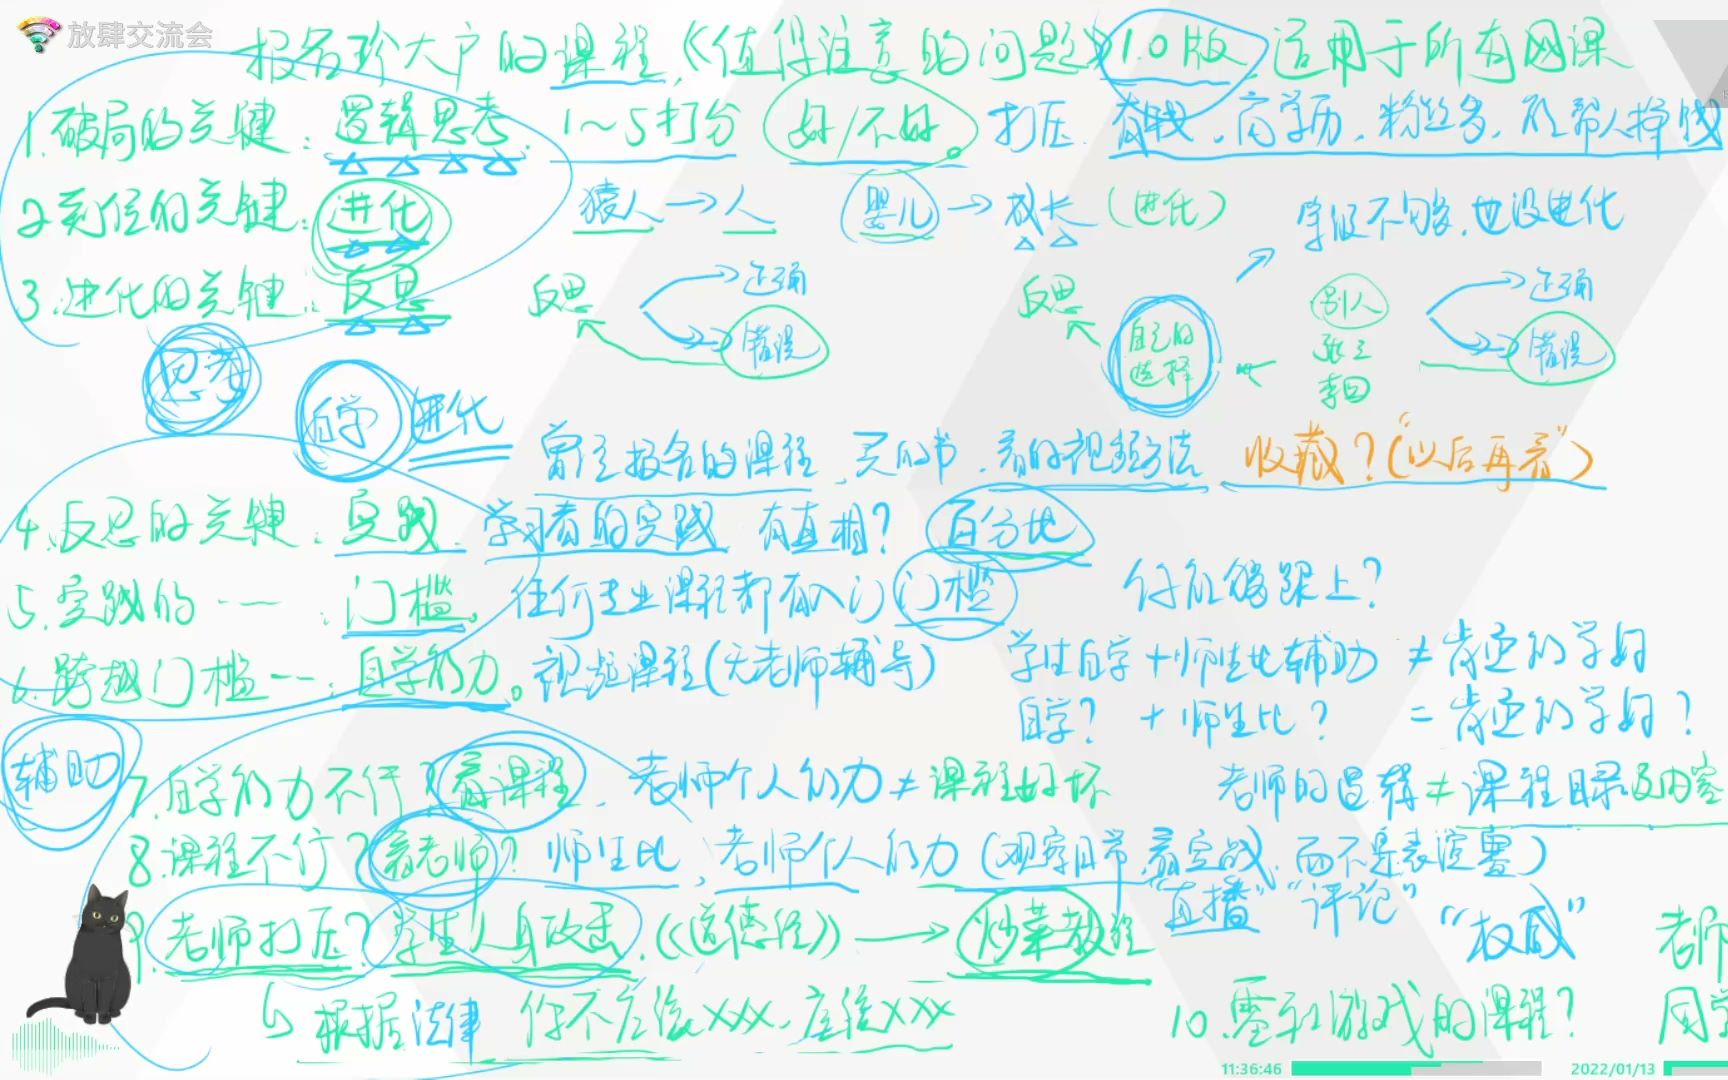 放肆交流会
报名珍大户的课程,《值得注意的问题》1.0版,适用于所有网课
1.破局的关键:逻辑思考. 1~5打分 好/不好。 打压. 有钱,高学历,粉丝多,能帮人挣钱
2.到位的关键:进化 猿人→人 婴儿→成长(进化) 等级不够,也没进化
3.进化的关键:反思 反思 正确 错误 反思 自己的选择 别人 张三 李四 正确 错误
思考
自学 进化
曾经报名的课程,买的书,看的视频方法 收藏?(“以后再看”)
4.反思的关键:实践. 学习者的实践 有真相? 百分比
5.实践的……:门槛。 任何专业课程都有入门门槛 你能够跟上?
6.跨越门槛……:自学能力。 视频课程(无老师辅导) 学生自学+师生比辅助≠肯定能学好
自学? +师生比? =肯定能学好?
辅助
7.自学能力不行?看课程. 老师个人能力≠课程好坏 老师的逻辑≠课程目录及内容
8.课程不行?看老师? 师生比,老师个人能力(观察日常,看实战,而不是表演赛)
“直播”“评论”
9.老师打压?学生人身攻击.《道德经》→炒菜教程 “权威” 老师
根据法律 你不应该xxx.应该xxx 10.雷和游戏的课程? 同学
11:36:46 2022/01/13